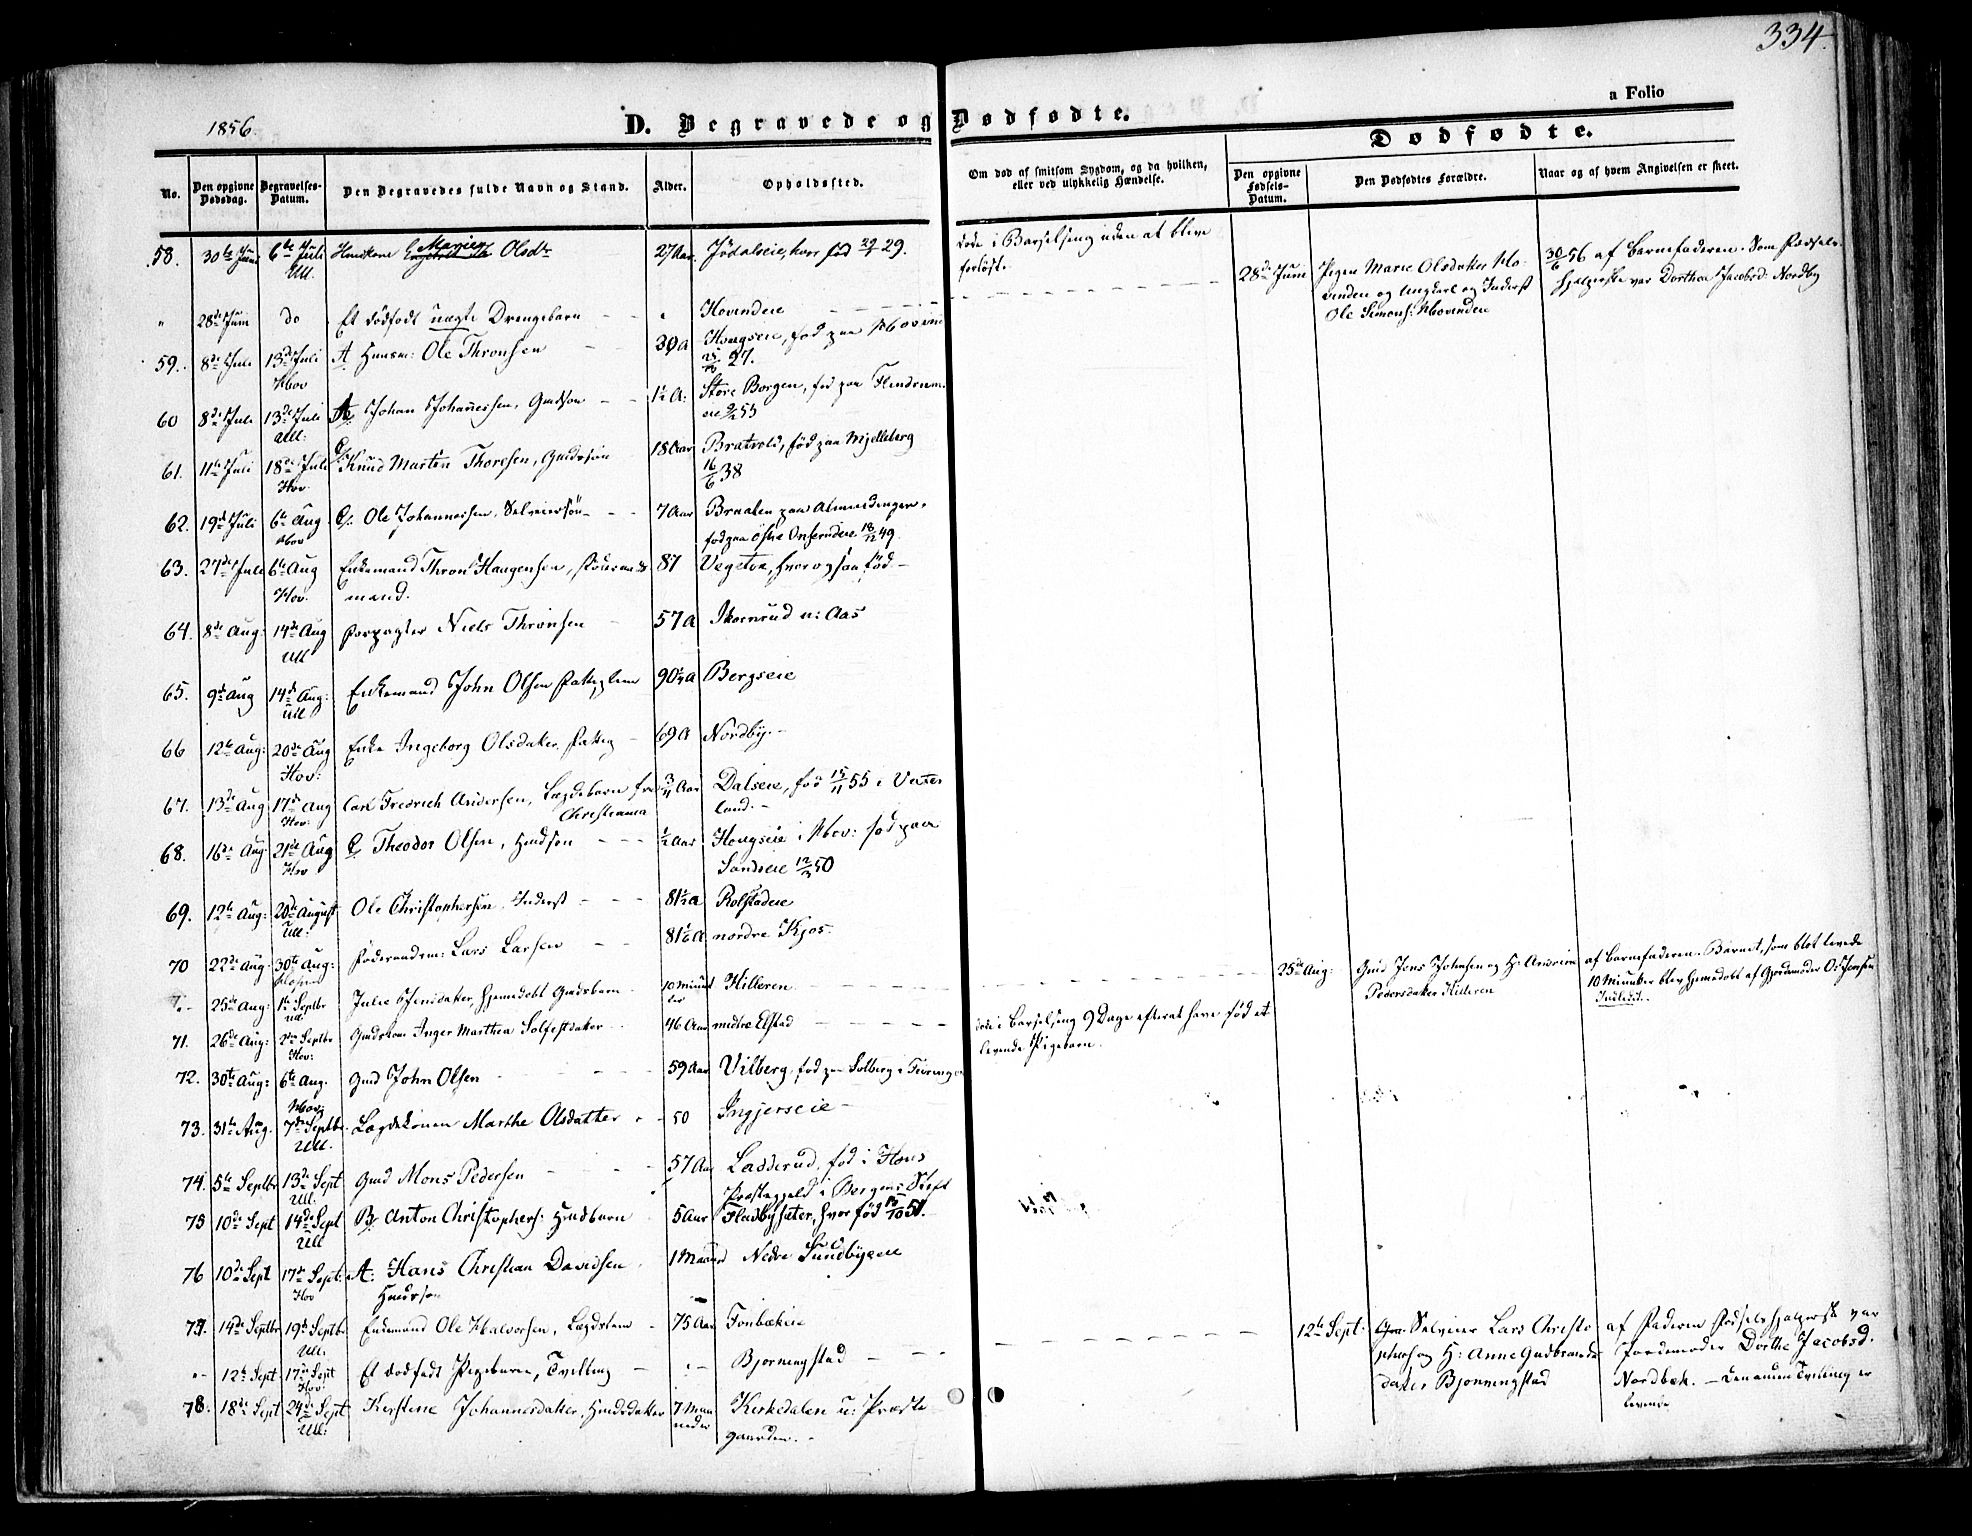 334.
a Folio
1856.
D. Begravede og Dødfødte.
Dødfødte.
No.
Den opgivne Dødsdag.
Begravelses-Datum.
Den Begravedes fulde Navn og Stand.
Alder.
Opholdssted.
Om død af smitsom Sygdom, og da hvilken, eller ved ulykkelig Hændelse.
Den opgivne Fødsels-Datum.
Den Dødfødtes Forældre.
Naar og af hvem Angivelsen er skeet.
58. 30te Juni 6te Juli Huuskone Maries Olsdtr 27 Aar Jödalseie, hvor fød 29.
Ull.
døde i Barselseng uden at blive
forløst.
" 28de Juni do Et dödfødt uægte Drengebarn " Hovindeie
28de Juni Pigen Marie Olsdatter Ho-
vinden og Ungkarl og Inderst
Ole Simens: Hovindeie
30/6 56 af Barnefaderen. Som Fødsels-
hjelperske var Dorthea Jacobsd: Nordby
59. 8de Juli 13de Juli A. Huusm: Ole Thronsen 30 A Hougseie, fød paa Hovin
Hov 27.
60 8de Juli 13de Juli Johan Johannessen, Gmdsön 1½ A: Store Borgen, fød paa Findrum
Ull: eie 9/2 55
61. 11te Juli 18de Juli Knud Marten Thoresen, Gmdsson 18 Aar Bratvold, fød paa Mjelleberg
Hov. 16/6 38
62. 19de Juli 6te Aug C. Ole Johannessen, Selveiersön 7 Aar Braaten paa Almindingen,
Hov fød paa östre Onserudeie 18/12 49.
63. 27de Juli 6te Aug Enkemand Thron Haugensen, 87 Vegstun, hvor ogsaa fød
Hov. mand.
64. 8de Aug: 14de Aug Forpagter Niels Thronsen 57 A Skornrud u: Aas
Ull
65. 9de Aug 14de Aug: Enkemand John Olsen Fattiglem 90½ A Bergseie
Ull
66 12te Aug: 20de Aug Enke Ingeborg Olsdatter, Fattig 69 A Nordby.
Hov:
67. 13de Aug 17de Aug Carl Fredrich Andersen, Lægdebarn fra 3/4 Aar Dalseie, fød 15/11 55 i Vater
Hov: Christiania land.
68. 16de Aug 21de Aug C. Theodor Olsen, Hmdsön ½ Aar Hougseie i Hov: fød paa
Hov Sandseie 12/3 50
69. 12te Aug: 20de August Ole Christophersen Inderst 81½ A Rolstadeie
Ull:
70 22de Aug 30te Aug: Föderaadsm: Lars Larsen 81½ A. nordre Kjos.
25de Aug: 1te Septbr Julie Jensdatter, hjemmedøbt Gmdsbarn 10 Minut Hilleren
Ull ter
25de Aug: Gmd Jens Johnsen og H:
Pedersdatter Hilleren
af Barnefaderen. Barnet, som blot levede
10 Minutter blev hjemmedøbt af Gjordemoder O: Jensen
71. 26de Aug: 2den Septbr Gmdskone Inger Marthea Solfestdatter 46 Aar nedre Elstad
Hov:
døde i Barselseng 9 Dage efter at have fød et
levende Pigebarn.
72. 30te Aug: 6te Aug. Gmd John Olsen 59 Aar Vilberg, fød paa Solberg i Feiringen
Hov:
73. 31te Aug. 7de Septbr. Lægdskonen Marthe Olsdatter 50 Ingjerseie
Ull.
74. 5te Septbr 13de Sept Gmd Mons Pedersen 57 Aar Ladderud, fød i Hous
Ull. Præstegjeld i Bergens Stift
75 10de Sept 14de Sept B. Anton Christophers: Hmdbarn 5 Aar Fladbysæter, hvor fød 51.
Ull
76 10de Sept 17de Sept: A: Hans Christian Davidsen 1 Maaned Nedre Sundbyeie
Hov Hmdssøn
77. 14de Septbr 19de Septbr. Enkemand Ole Halvorsen, Lægdslem 75 Aar Fonbækeie
Ull.
" 12te Sept 17de Sept Et dødfødt Pigebarn, Tvilling " Bjørningstad
Hov:
12te Sept: Selveier Lars Christo
phersen og H: Anne Gudbrands
datter Bjørningstad
af Faderen Fødselshjelperske var
Jordemoder Dorthe Jacobsd.
Nordbæk. – Den anden Tvilling er
levende
78. 18de Sept 24de Sept Kirstine Johannesdatter, Hmdsdatter 7 Maa Kirkedalen u: Præste
Ull: neder gaarden.